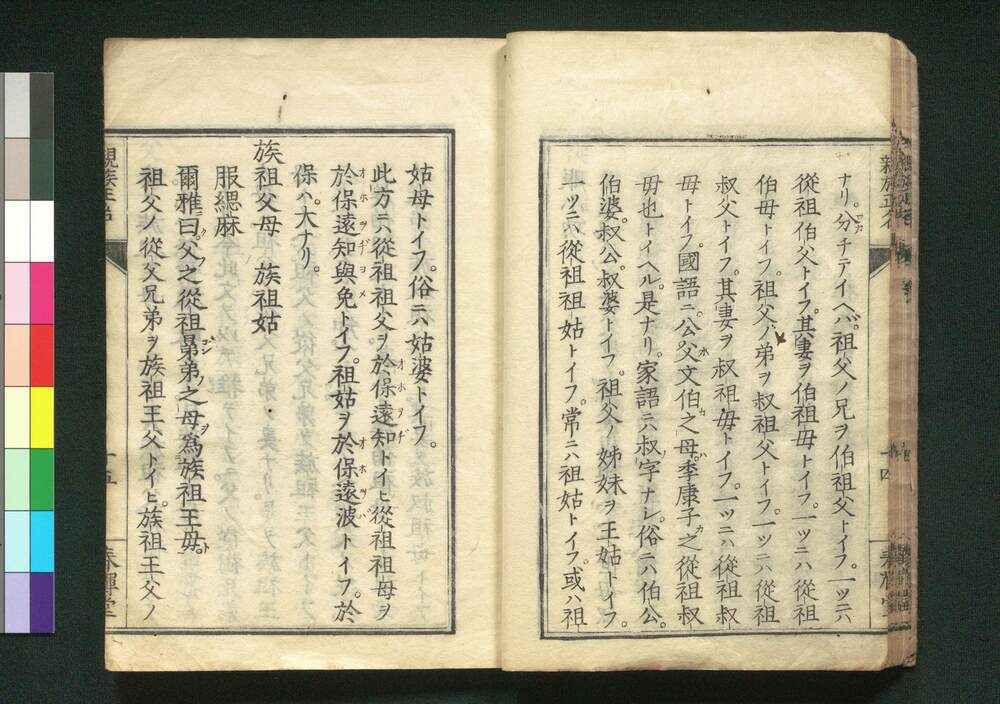 ナリ。分チテイヘバ。祖父ノ兄ヲ伯祖父トイフ。一ツニハ
從祖伯父トイフ。其妻ヲ伯祖毋トイフ。一ツニハ從祖
伯毋トイフ。祖父ノ弟ヲ叔祖父トイフ。一ツニハ從祖
叔父トイフ。其妻ヲ叔祖毋トイフ。一ツニハ從祖叔
毋トイフ。國語ニ。公父文伯之母。季康子之從祖叔
毋也トイヘル。是ナリ。家語ニハ叔字ナシ。俗ニハ伯公。
伯婆。叔公。叔婆トイフ。祖父ノ姊妹ヲ王姑トイフ。
一ツニハ從祖祖姑トイフ。常ニハ祖姑トイフ。或ハ祖
親族正名
十四
春輝堂
姑母トイフ。俗ニハ姑婆トイフ。
此方ニハ從祖祖父ヲ於保遠知トイヒ從祖祖母ヲ
於保遠知與免トイフ。祖姑ヲ於保遠波トイフ。於
保ハ大ナリ。
族祖父母 族祖姑
服緦麻
爾雅曰。父之從祖晜弟之母。爲族祖王毋。ト
祖父ノ從父兄弟ヲ族祖王父トイヒ。族祖王父ノ
親族正名
十五
春輝堂